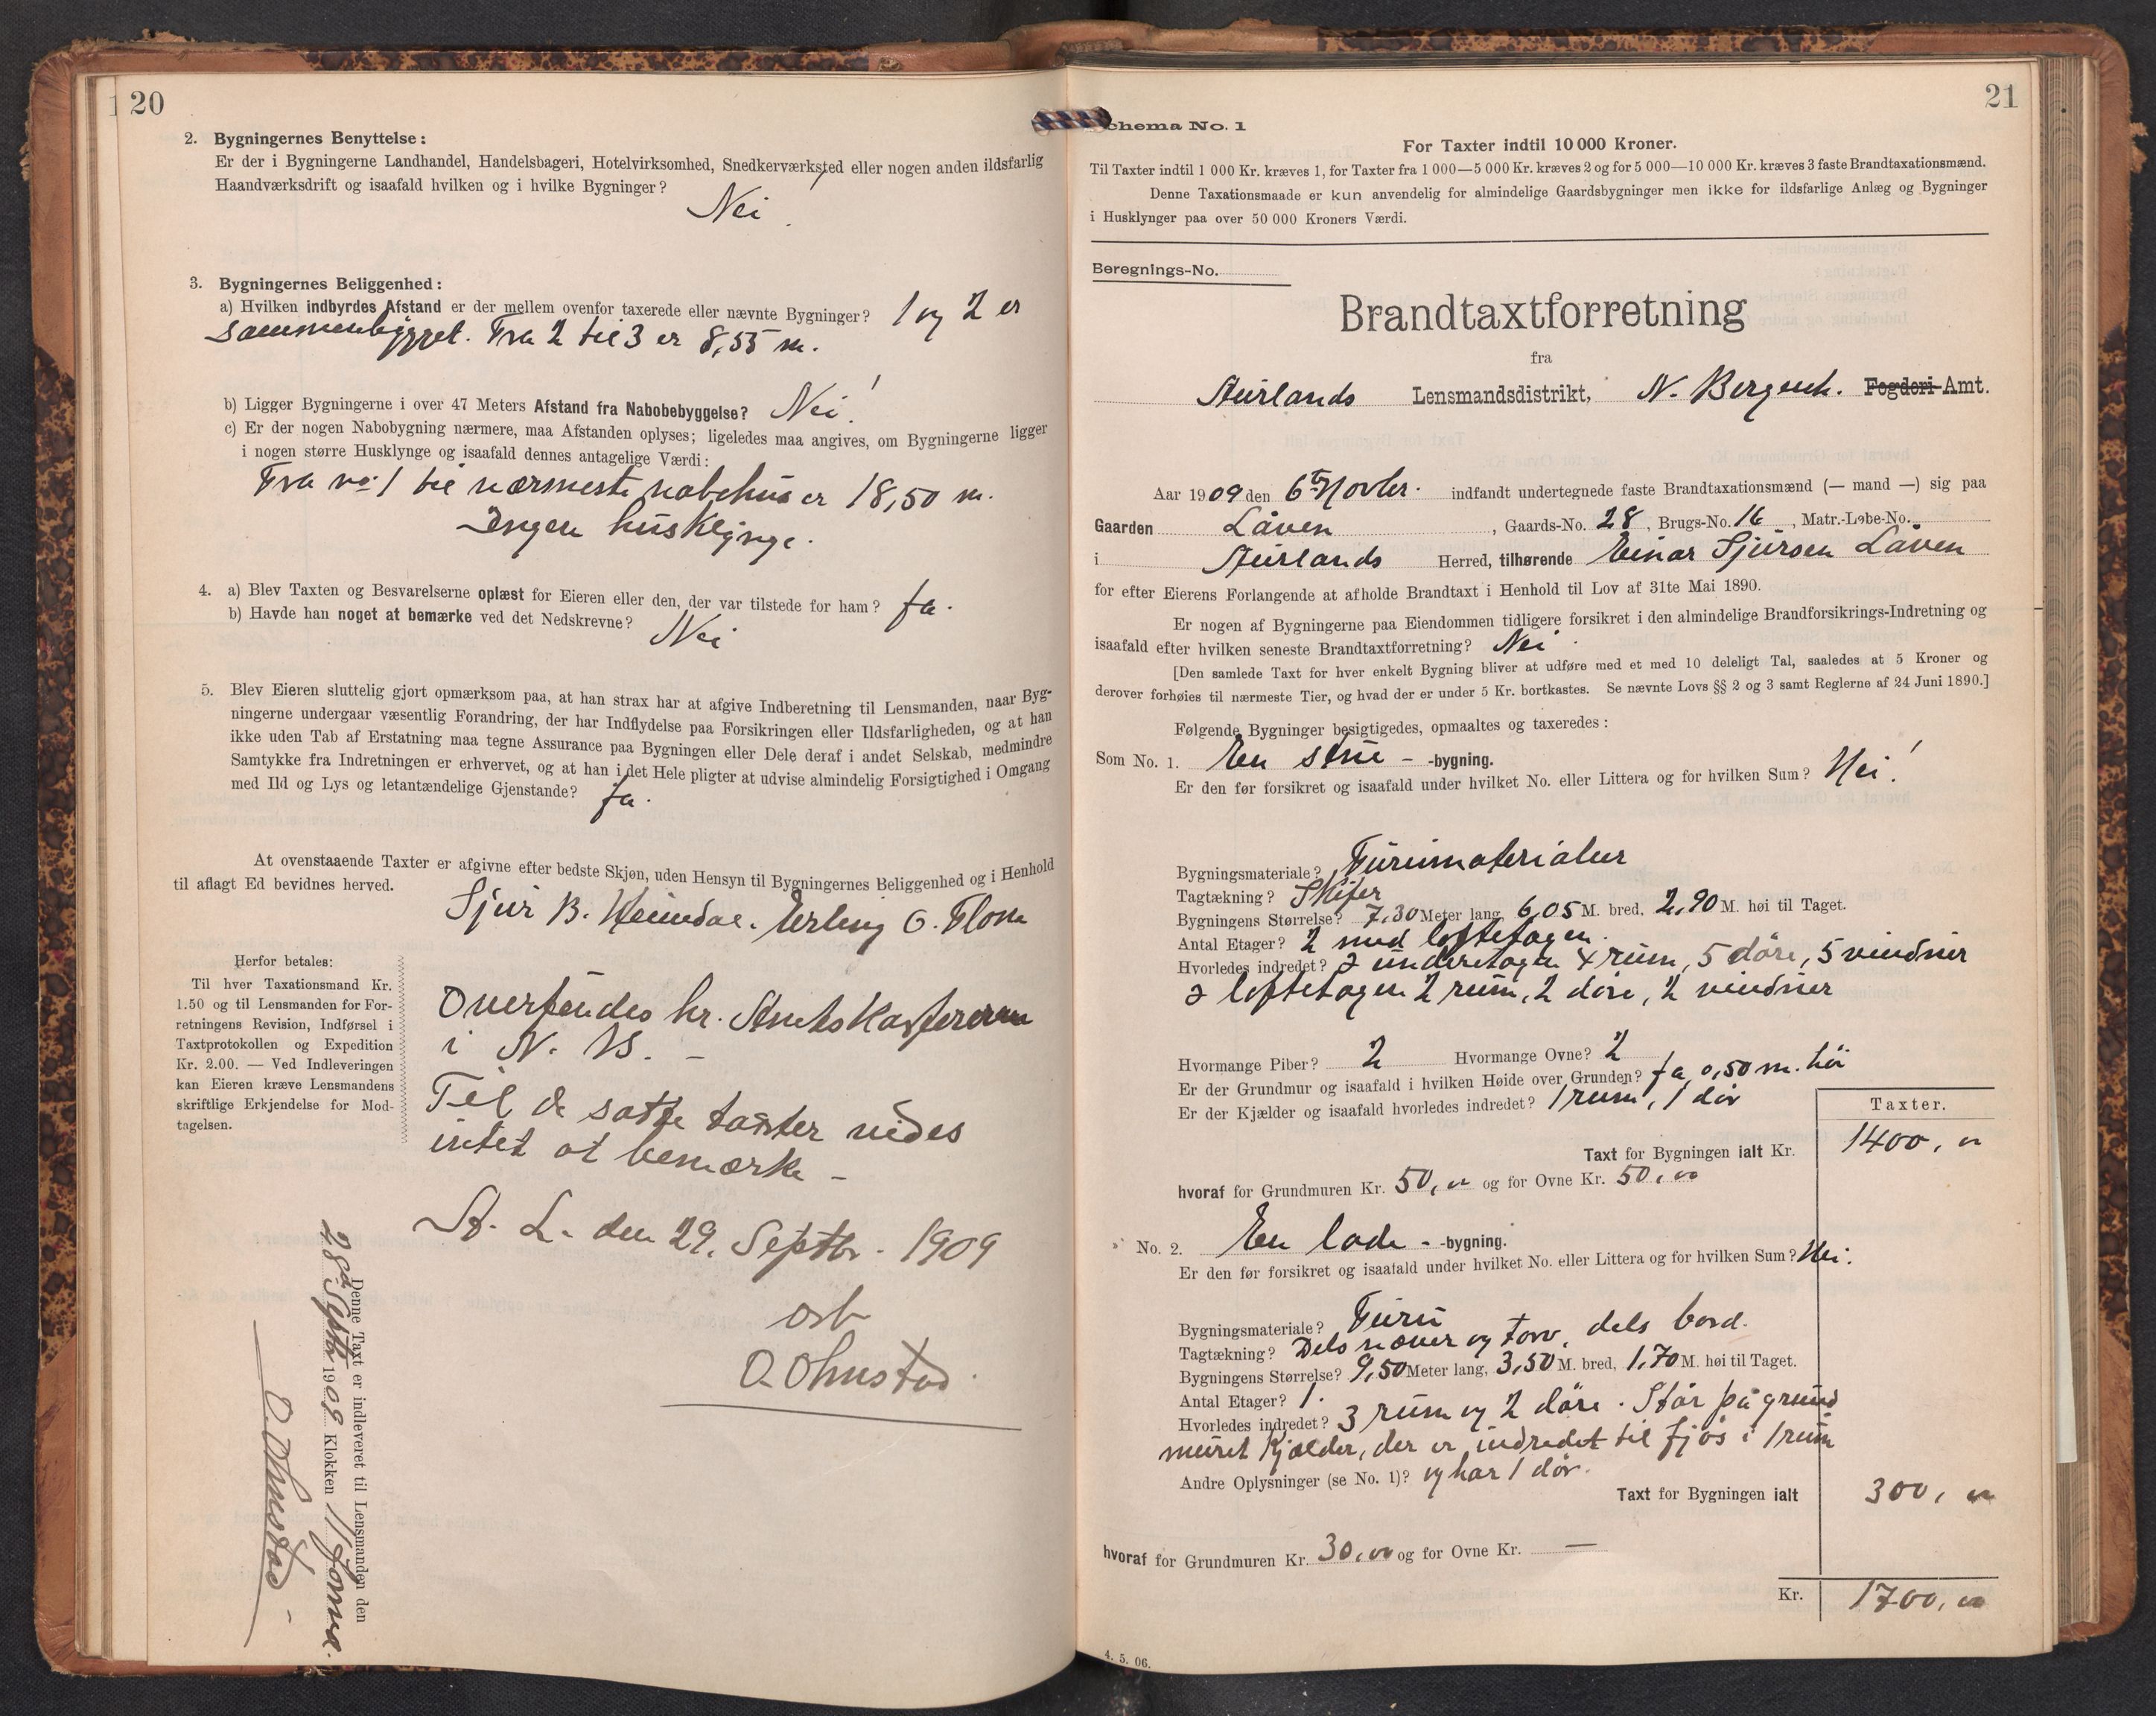 20
2. Bygningernes Benyttelse:
Er der i Bygningerne Landhandel, Handelsbageri, Hotelvirksomhed, Snedkerværksted eller nogen anden ildsfarlig
Haandværksdrift og isaafald hvilken og i hvilke Bygninger?
Nei
3. Bygningernes Beliggenhed:
a) Hvilken indbyrdes Afstand er der mellem ovenfor taxerede eller nævnte Bygninger? 1 og 2 er
sammenbygget. Fra 2 til 3 er 8,55 m.
b) Ligger Bygningerne i over 47 Meters Afstand fra Nabobebyggelse? Nei!
c) Er der nogen Nabobygning nærmere, maa Afstanden oplyses; ligeledes maa angives, om Bygningerne ligger
i nogen større Husklynge og isaafald dennes antagelige Værdi:
Fra no 1 til nærmeste nabohus er 18,50 m.
Ingen husklynge.
4. a) Blev Taxten og Besvarelserne oplæst for Eieren eller den, der var tilstede for ham? Ja.
b) Havde han noget at bemærke ved det Nedskrevne?
Nei
5. Blev Eieren sluttelig gjort opmærksom paa, at han strax har at afgive Indberetning til Lensmanden, naar Byg-
ningerne undergaar væsentlig Forandring, der har Indflydelse paa Forsikringen eller Ildsfarligheden, og at han
ikke uden Tab af Erstatning maa tegne Assurance paa Bygningen eller Dele deraf i andet Selskab, medmindre
Samtykke fra Indretningen er erhvervet, og at han i det Hele pligter at udvise almindelig Forsigtighed i Omgang
med Ild og Lys og letantændelige Gjenstande? Ja.
At ovenstaaende Taxter er afgivne efter bedste Skjøn, uden Hensyn til Bygningernes Beliggenhed og i Henhold
til aflagt Ed bevidnes herved.
Sjur B. Heimdal. Erling O. Flom
Herfor betales:
Til hver Taxationsmand Kr.
1.50 og til Lensmanden for For-
retningens Revision, Indførsel i
Taxtprotokollen og Expedition
Kr. 2.00. — Ved Indleveringen
kan Eieren kræve Lensmandens
skriftlige Erkjendelse for Mod-
tagelsen.
Oversendes hr. Amtskassereren
i N. B. –
Til de satte taxter vides
intet at bemærke –
A. L. den 29. Septbr. 1909
O. Ohnstad
Denne Taxt er indleveret til Lensmanden den
28de Septbr 1909 Klokken 11 form.
O. Ohnstad –
21
Schema No. 1
For Taxter indtil 10 000 Kroner.
Til Taxter indtil 1 000 Kr. kræves 1, for Taxter fra 1 000—5 000 Kr. kræves 2 og for 5 000—10 000 Kr. kræves 3 faste Brandtaxationsmænd.
Denne Taxationsmaade er kun anvendelig for almindelige Gaardsbygninger men ikke for ildsfarlige Anlæg og Bygninger
i Husklynger paa over 50 000 Kroners Værdi.
Beregnings-No.
Brandtaxtforretning
fra
Aurlands Lensmandsdistrikt, N. Bergenh. Fogderi Amt.
Aar 1909 den 6te Novbr. indfandt undertegnede faste Brandtaxationsmænd (— mand —) sig paa
Gaarden Låven, Gaards-No. 28, Brugs-No. 16, Matr.-Løbe-No.
i Aurlands Herred, tilhørende Einar Sjursen Låven
for efter Eierens Forlangende at afholde Brandtaxt i Henhold til Lov af 31te Mai 1890.
Er nogen af Bygningerne paa Eiendommen tidligere forsikret i den almindelige Brandforsikrings-Indretning og
isaafald efter hvilken seneste Brandtaxtforretning? Nei
[Den samlede Taxt for hver enkelt Bygning bliver at udføre med et med 10 deleligt Tal, saaledes at 5 Kroner og
derover forhøies til nærmeste Tier, og hvad der er under 5 Kr. bortkastes. Se nævnte Lovs §§ 2 og 3 samt Reglerne af 24 Juni 1890.]
Følgende Bygninger besigtigedes, opmaaltes og taxeredes:
Som No. 1. En stue - -bygning.
Er den før forsikret og isaafald under hvilket No. eller Littera og for hvilken Sum? Nei!
Bygningsmateriale? Furumaterialer
Tagtækning? Skifer
Bygningens Størrelse? 7,30 Meter lang, 6,05 M. bred, 2,90 M. høi til Taget.
Antal Etager? 2 med loftetagen.
Hvorledes indredet? I underetagen 4 rum, 5 døre, 5 vinduer
I loftetagen 2 rum, 2 døre, 2 vinduer
Hvormange Piber? 2 Hvormange Ovne? 2
Er der Grundmur og isaafald i hvilken Høide over Grunden? Ja, 0,50 m. høi
Er der Kjælder og isaafald hvorledes indredet? 1 rum, 1 dør
Taxter.
Taxt for Bygningen ialt Kr. 1400, "
hvoraf for Grundmuren Kr. 50, " og for Ovne Kr. 50, "
No. 2. En lade - -bygning.
Er den før forsikret og isaafald under hvilket No. eller Littera og for hvilken Sum? Nei.
Bygningsmateriale? Furu
Tagtækning? Dels næver og torv, dels bord.
Bygningens Størrelse? 9,50 Meter lang, 3,50 M. bred, 1,70 M. høi til Taget.
Antal Etager? 1.
Hvorledes indredet? 3 rum og 2 døre. Står på grund
muret kjælder, der er indredet til fjøs i 1 rum
Andre Oplysninger (se No. 1)? og har 1 dør.
Taxt for Bygningen ialt 300, "
hvoraf for Grundmuren Kr. 30, " og for Ovne Kr. —
Kr. 1700, "
4. 5. 06.